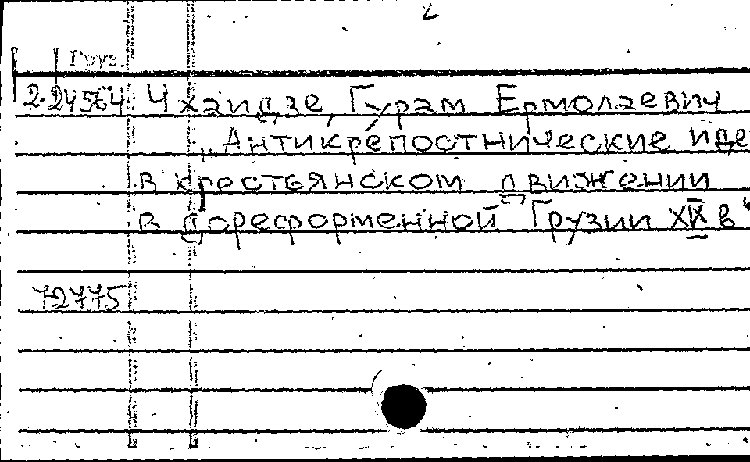 2
Груз.
2.24564 Чхаидзе, Гурам Ермолаевич
„Антикрепостнические иде
в крестьянском движении
в дореформенной Грузии XIX в“
72775